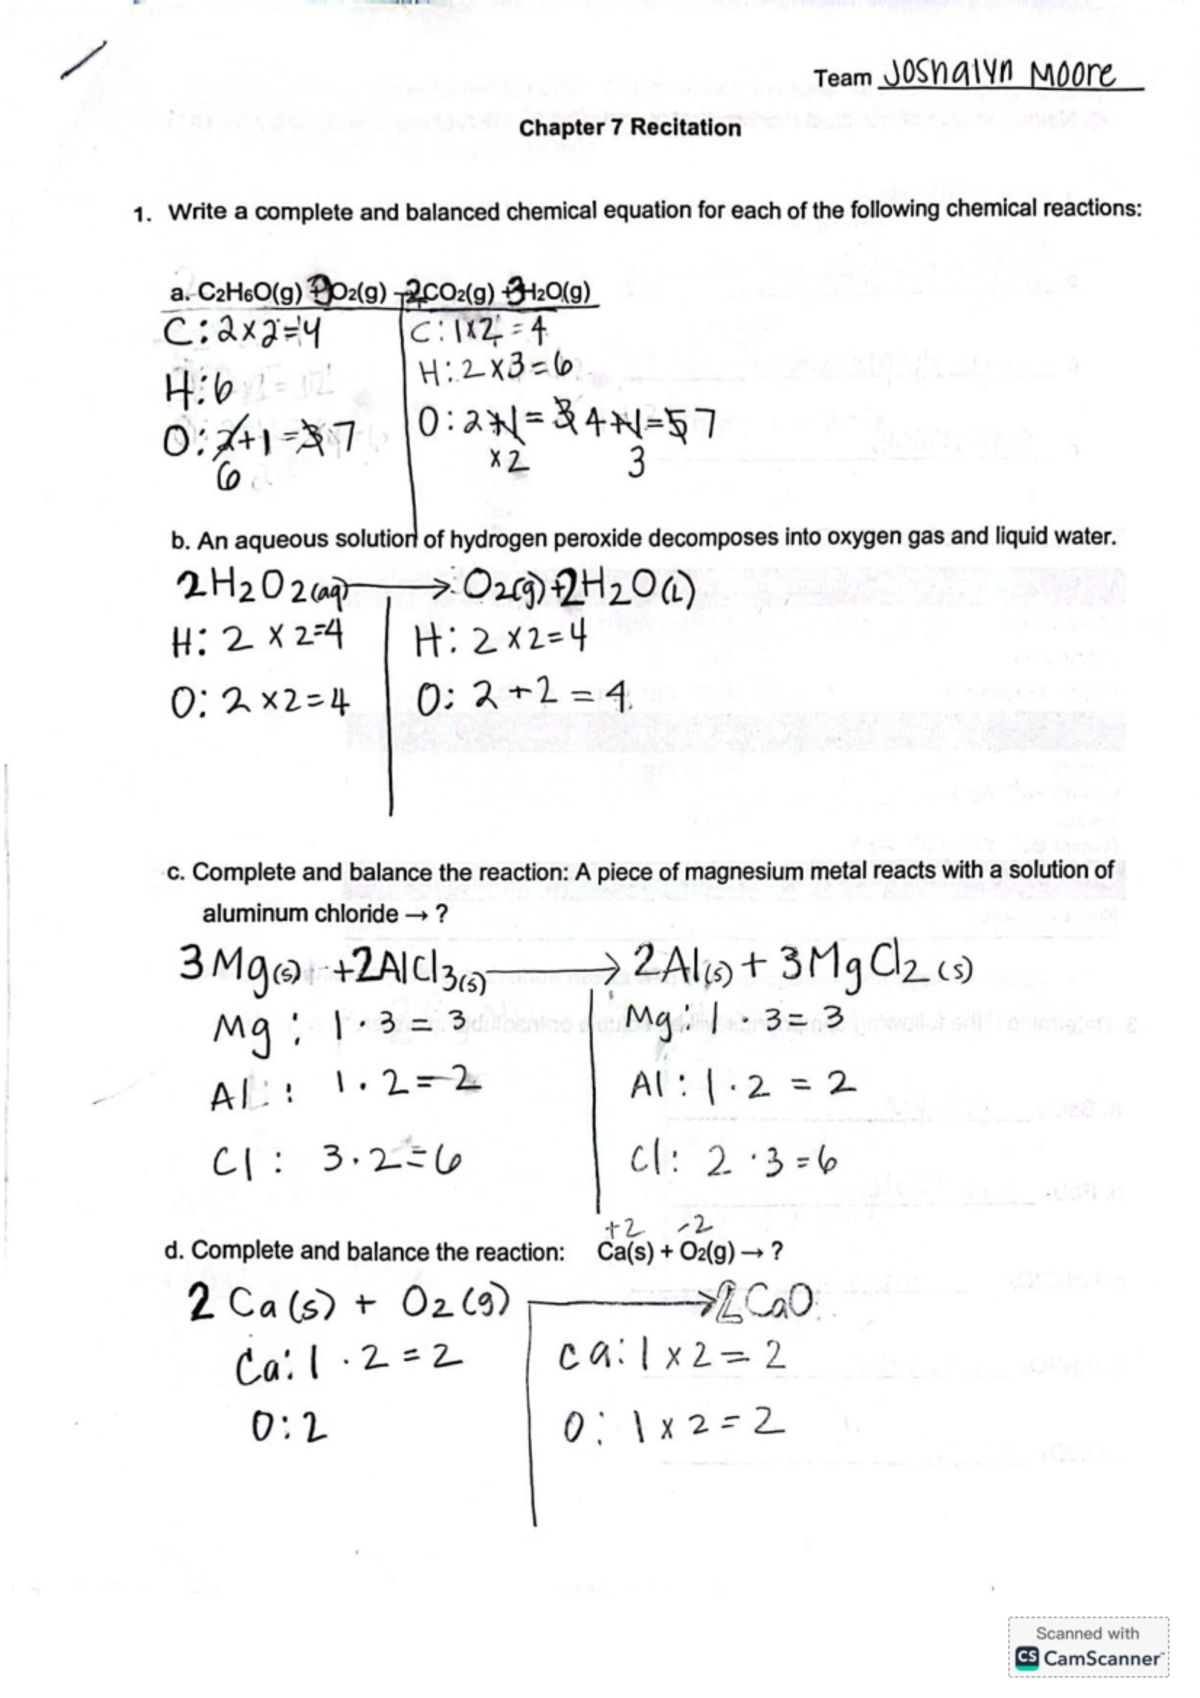 Team Joshalyn Moore
Chapter 7 Recitation
1. Write a complete and balanced chemical equation for each of the following chemical reactions:
a. C2H6O(g) 3O2(g) → 2CO2(g) + 3H2O(g)
C: 2x2=4
C: 1x2 = 4
H: 6
H: 2x3=6
O: 2+1 = 3 7
6
O: 2+1 = 3 4+1=5 7
x2 3
b. An aqueous solution of hydrogen peroxide decomposes into oxygen gas and liquid water.
2H2O2(aq) → O2(g)+2H2O(l)
H: 2 x 2=4
H: 2x2=4
O: 2x2=4
O: 2+2=4
c. Complete and balance the reaction: A piece of magnesium metal reacts with a solution of
aluminum chloride → ?
3Mg(s) +2AlCl3(s) → 2Al(s) + 3MgCl2(s)
Mg: 1·3=3
Mg: 1·3=3
Al: 1·2=2
Al: 1·2 = 2
Cl: 3·2=6
Cl: 2·3=6
+2 -2
d. Complete and balance the reaction: Ca(s) + O2(g) → ?
2Ca(s) + O2(g) → 2CaO
Ca: 1·2=2
Ca: 1x2=2
O: 2
O: 1x2=2
Scanned with
CS CamScanner